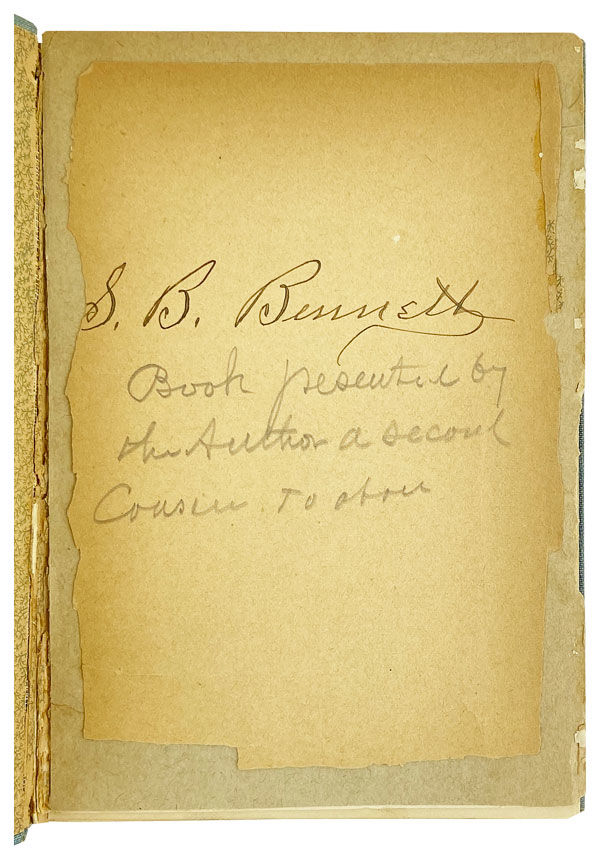 S. B. Bennett
Book presented by
the Author a second
Cousin to above